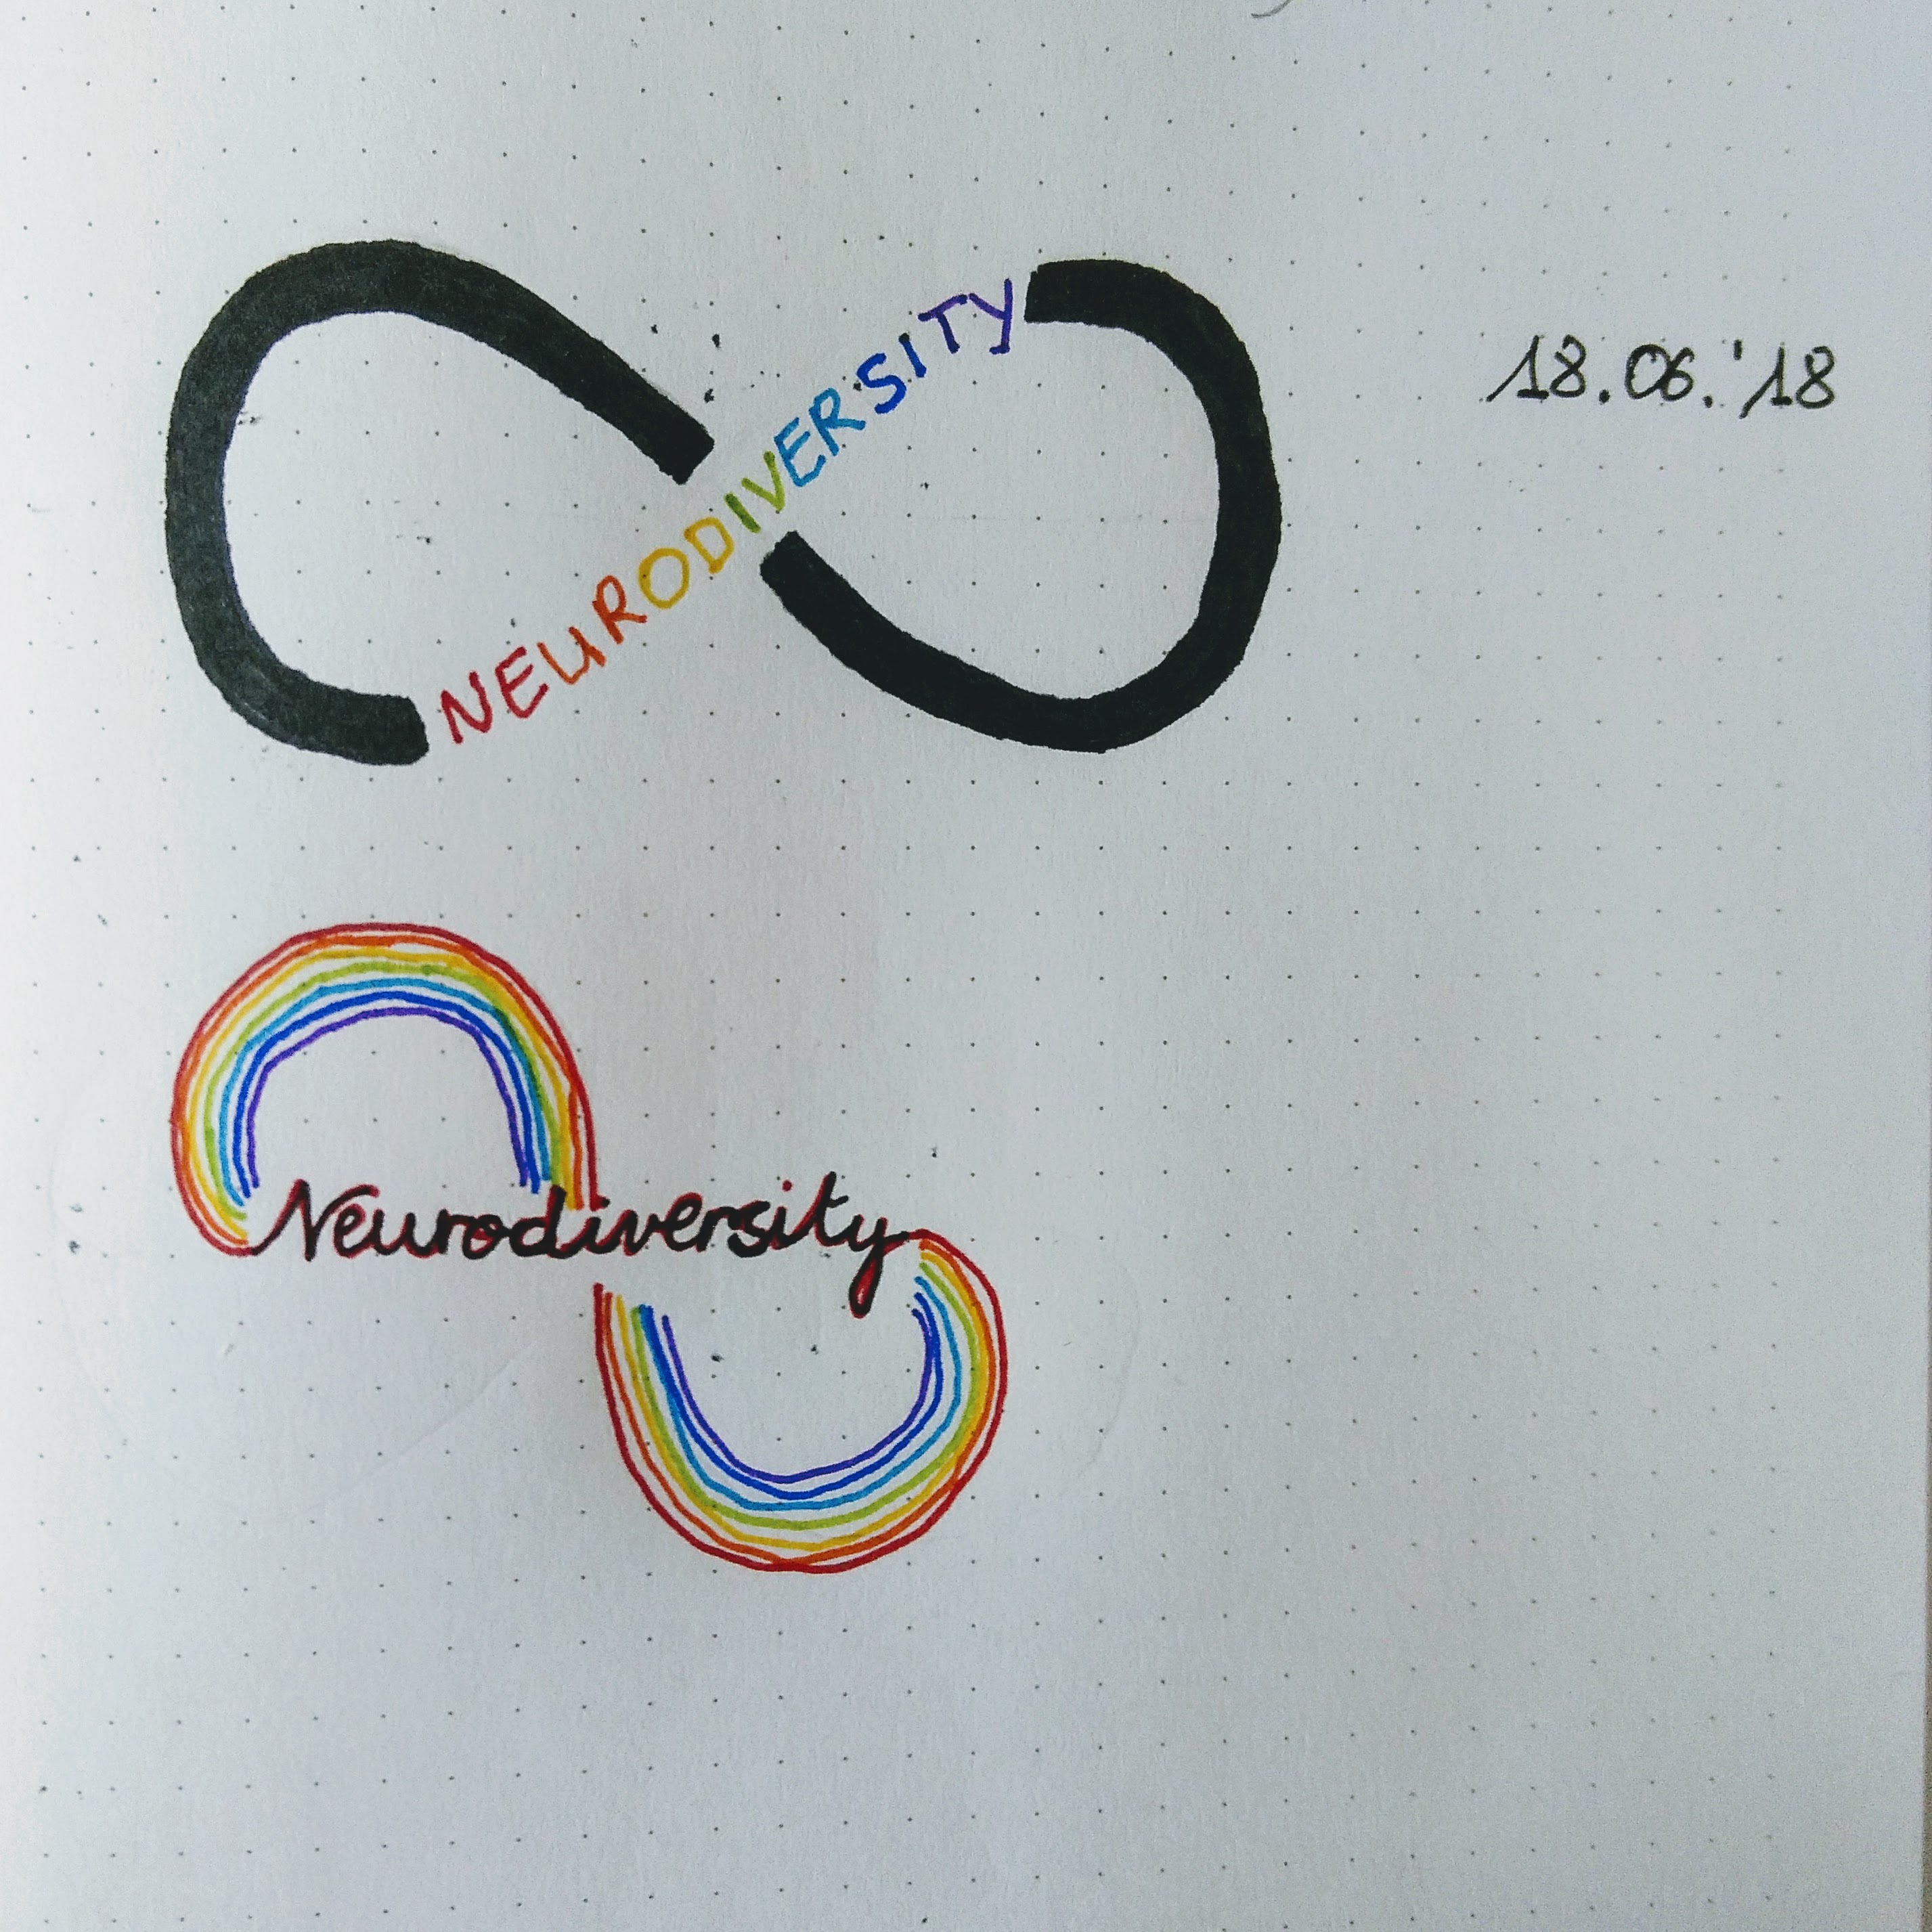 NEURODIVERSITY
18.06.'18
Neurodiversity